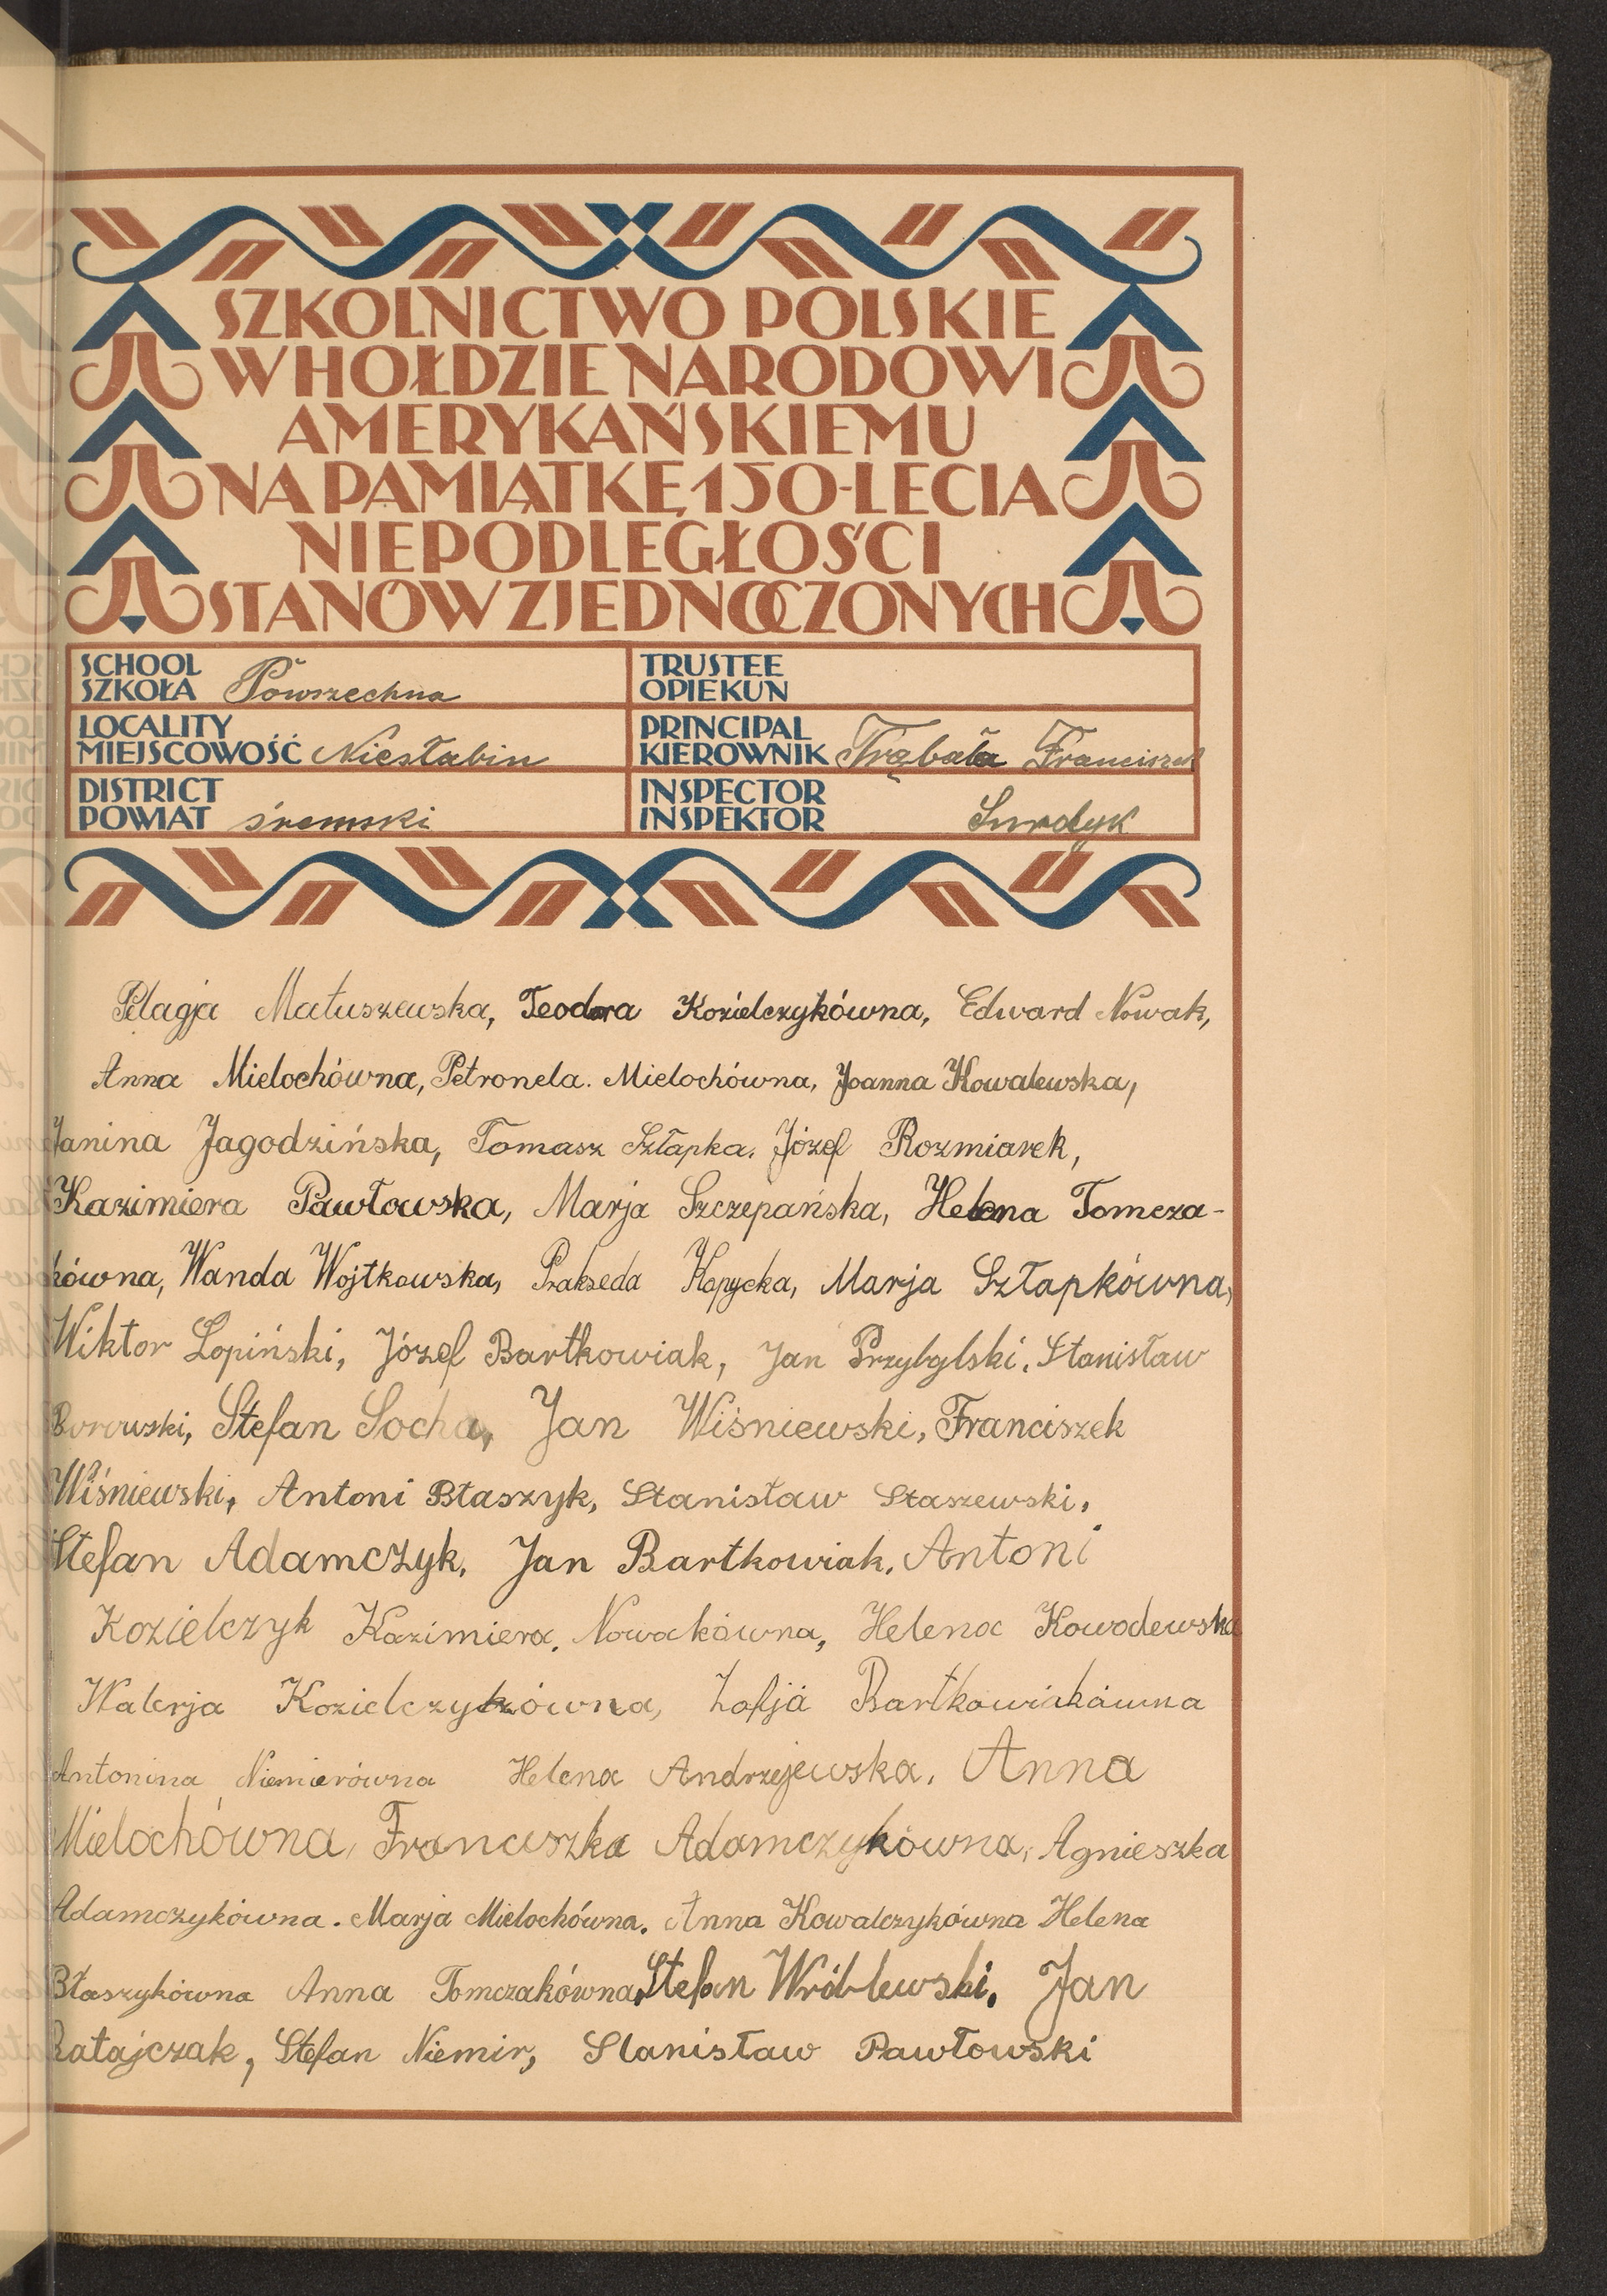 SZKOLNICTWO POLSKIE
W HOŁDZIE NARODOWI
AMERYKAŃSKIEMU
NA PAMIĄTKĘ 150-LECIA
NIEPODLEGŁOŚCI
STANÓW ZJEDNOCZONYCH
SCHOOL
SZKOŁA Powszechna
LOCALITY
MIEJSCOWOŚĆ Niesłabin
DISTRICT
POWIAT śremski
TRUSTEE
OPIEKUN
PRINCIPAL
KIEROWNIK Trąbała Franciszek
INSPECTOR
INSPEKTOR Surdyk
Pelagja Matuszewska, Teodora Kozielczykówna, Edward Nowak,
Anna Mielochówna, Petronela. Mielochówna, Joanna Kowalewska,
Janina Jagodzińska, Tomasz Szłapka. Józef Rozmiarek,
Kazimiera Pawłowska, Marja Szczepańska, Helena Tomcza-
kówna, Wanda Wojtkowska, Prakseda Kopycka, Marja Szłapkówna,
Wiktor Łopiński, Józef Bartkowiak, Jan Przybylski. Stanisław
Borowski, Stefan Socha, Jan Wiśniewski, Franciszek
Wiśniewski, Antoni Błaszyk, Stanisław Staszewski,
Stefan Adamczyk, Jan Bartkowiak. Antoni
Kozielczyk Kazimiera. Nowakówna, Helena Kowalewska
Walerja Kozielczykówna, Zofja Bartkowiakówna
Antonina Niemierówna Helena Andrzejewska. Anna
Mielochówna, Franciszka Adamczykówna, Agnieszka
Adamczykówna. Marja Mielochówna. Anna Kowalczykówna Helena
Błaszykówna Anna Tomczakówna, Stefan Wróblewski. Jan
Ratajczak, Stefan Niemir, Stanisław Pawłowski